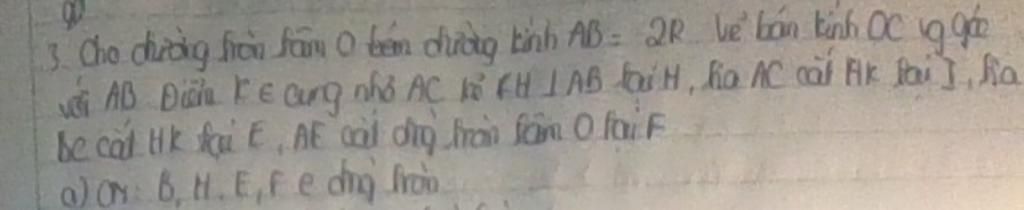 3. Cho đường tròn tâm O đường kính AB = 2R Vẽ bán kính OC vg góc
với AB Điểm K ∈ cung nhỏ AC kẻ KH ⊥ AB tại H, tia AC cắt HK tại I, tia
BC cắt HK tại E, AE cắt đng tròn tâm O tại F
a) CM: B, H, E, F ∈ đng tròn